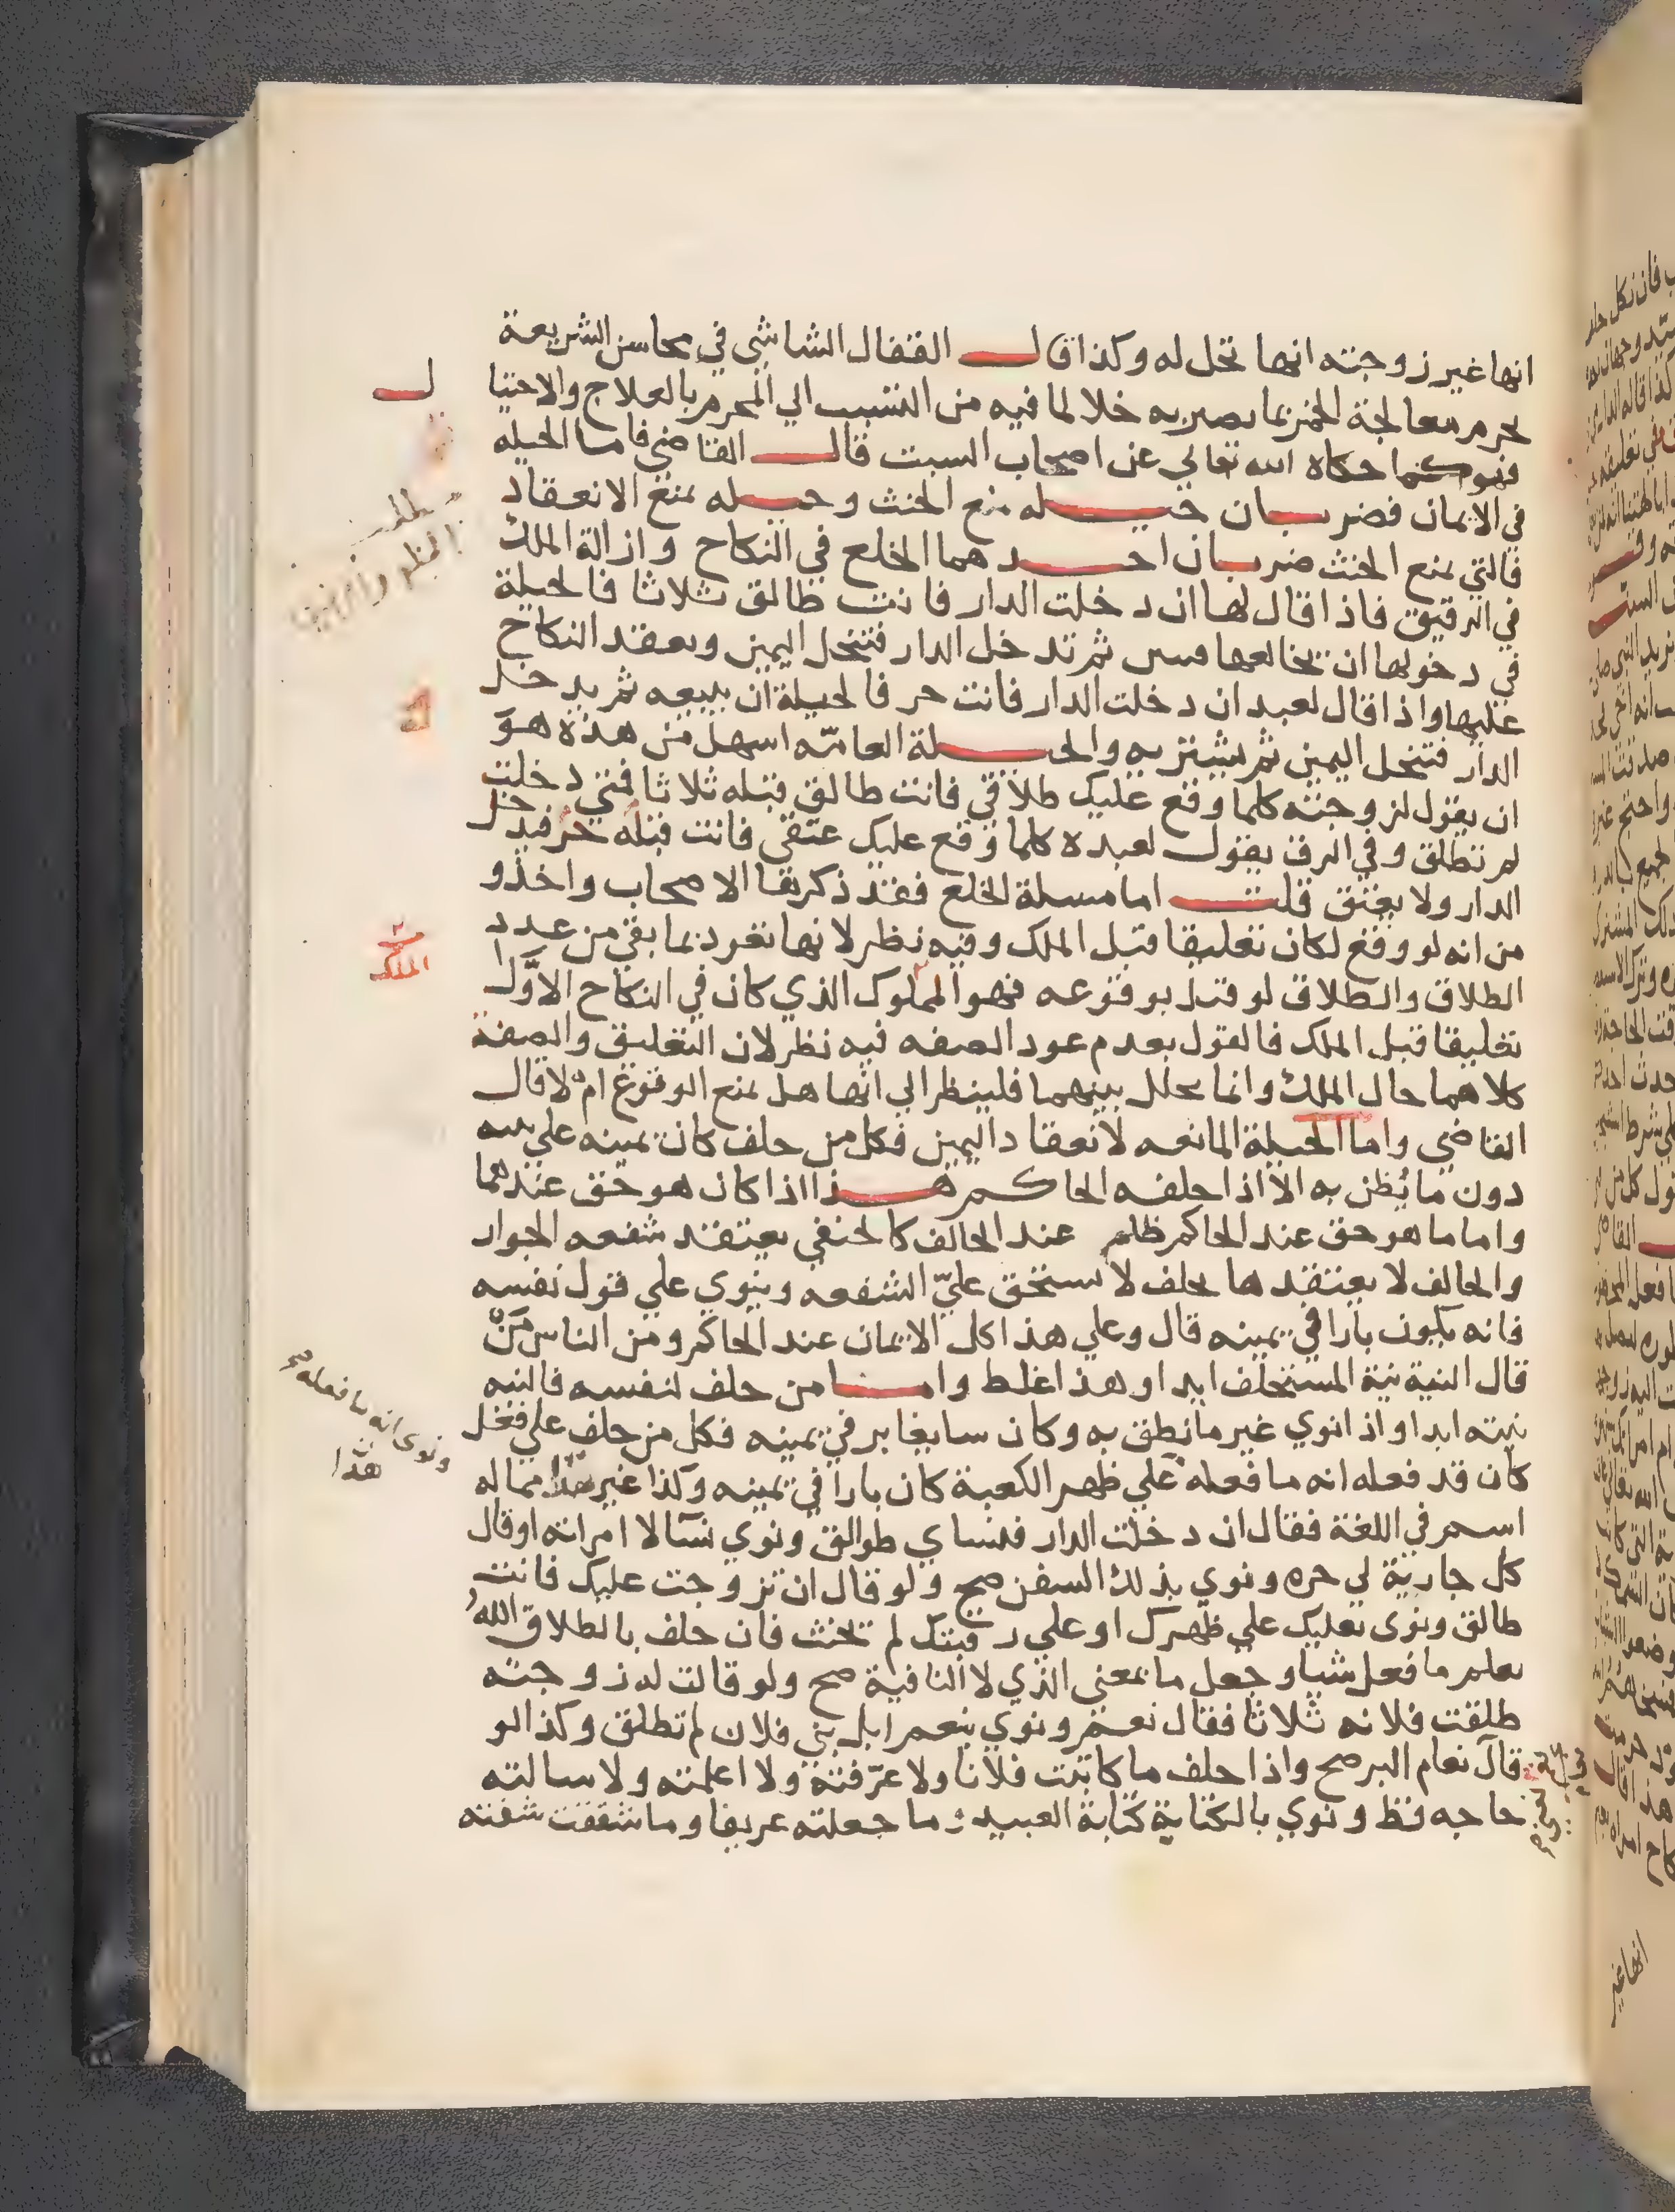 انها غير زوجته انها تحل له وكذا قال القفال الشاشي في محاسن الشريعة
يحرم معالجة الخمر بما يصير به خلا لما فيه من التسبب الي المحرم بالعلاج والاحتيا
ل
فهو كما حكاه الله تعالي عن اصحاب السبت قال القاضي فاما الحيله
في الايمان فضربان حيله منع الحنث وحيله تمنع الانعقاد
فالتي تمنع الحنث ضربان احدهما الخلع في النكاح وازالة الملك
في الرقيق فاذا قال لها ان دخلت الدار فانت طالق ثلاثا فالحيلة
في دخولها ان يخالعها ثم تدخل الدار فتنحل اليمين ويعقد النكاح
عليها واذا قال لعبد ان دخلت الدار فانت حر فالحيلة ان يبيعه ثم يدخل
الدار فتنحل اليمين ثم يشتريه والحيلة العامة اسهل من هذه هو
ان يقول لزوجته كلما وقع عليك طلاقي فانت طالق قبله ثلاثا فمتي دخلت
لم تطلق وفي الرق يقول لعبده كلما وقع عليك عتقي فانت قبله حر فيدخل
الدار ولا يعتق قلت اما مسلة الخلع فقد ذكرها الاصحاب واخذو
ا
من انه لو وقع لكان تعليقا قبل الملك وفيه نظر لانها تعود بما بقي من عدد
الطلاق والطلاق لو قيل بوقوعه فهو المملوك الذي كان في النكاح الاول
الملك
تعليقا قبل الملك فالقول بعدم عود الصفه فيه نظر لان التعليق والصفة
كلاهما حال الملك وانما تخلل بينهما فلينظر الي انها هل تمنع الوقوع ام لا قال
القاضي واما الحيلة المانعه لانعقاد اليمين فكل من حلف كان يمينه علي نيته
دون ما يُظن به الا اذا حلفه الحاكم هذا اذا كان هو حق عندهما
واما ما هو حق عند الحاكم ظلم عند الحالف كالحنفي يعتقد شفعه الجوار
والحالف لا يعتقدها يحلف لا يستحق عليّ الشفعه وينوي علي قول نفسه
فانه يكون بارا في يمينه قال وعلي هذا كل الايمان عند الحاكم ومن الناس مَنْ
قال النية نية المستحلف ابدا وهذا غلط واما من حلف لنفسه فالنيه
نيته ابدا واذا نوي غير ما نطق به وكان سايغا بر في يمينه فكل من حلف علي فعل
كان قد فعله انه ما فعله علي ظهر الكعبة كان بارا في يمينه وكذا غير هذا مما له
ونوي انه ما فعله صح
هذا
اسم في اللغة فقال ان دخلت الدار فنساي طوالق ونوي نسآ لا امراته او قال
كل جارية لي حره ونوي بذلك السفن صح ولو قال ان تزوجت عليك فانت
طالق ونوي بعليك علي ظهرك او علي رقبتك لم تحنث فان حلف بالطلاق اللهُ
يعلم ما فعل شيا وجعل ما بمعني الذي لا النافية صح ولو قالت له زوجته
طلقت فلانه ثلاثا فقال نعم ونوي بنعم ابل بني فلان لم تطلق وكذا لو
قال نعام البر صح واذا حلف ما كاتبت فلانا ولا عرّفته ولا اعلمته ولا سالته
حاجه قط ونوي بالكتابة كتابة العبيد وما جعلته عريفا وما شققت شفته
انها غير